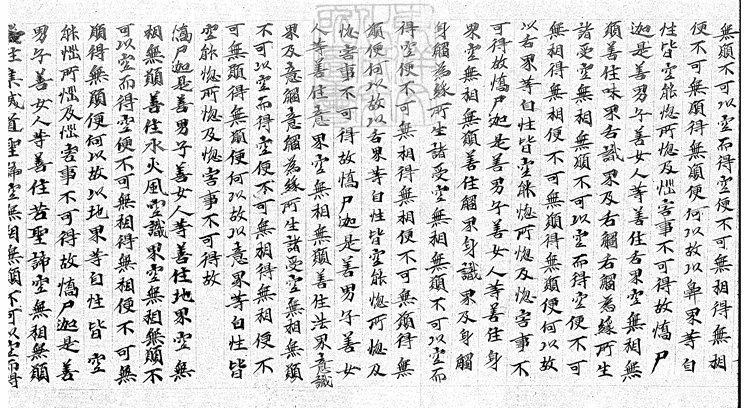 無願不可以空而得空便不可無相得無相
便不可無願得無願便何以故以鼻界等自
性皆空能惱所惱及惱害事不可得故憍尸
迦是善男子善女人等善住舌界空無相無
願善住味界舌識界及舌觸舌觸為緣所生
諸受空無相無願不可以空而得空便不可
無相得無相便不可無願得無願便何以故
以舌界等自性皆空能惱所惱及惱害事不
可得故憍尸迦是善男子善女人等善住身
界空無相無願善住觸界身識界及身觸
身觸為緣所生諸受空無相無願不可以空而
得空便不可無相得無相便不可無願得無
願便何以故以舌界等自性皆空能惱所惱及
惱害事不可得故憍尸迦是善男子善女
人等善住意界空無相無願善住法界意識
界及意觸意觸為緣所生諸受空無相無願
不可以空而得空便不可無相得無相便不
可無願得無願便何以故以意界等自性皆
空能惱所惱及惱害事不可得故
憍尸迦是善男子善女人等善住地界空無
相無願善住水火風空識界空無相無願不
可以空而得空便不可無相得無相便不可無
願得無願便何以故以地界等自性皆空
能惱所惱及惱害事不可得故憍尸迦是善
男子善女人等善住苦聖諦空無相無願
善住集滅道聖諦空無相無願不可以空而得